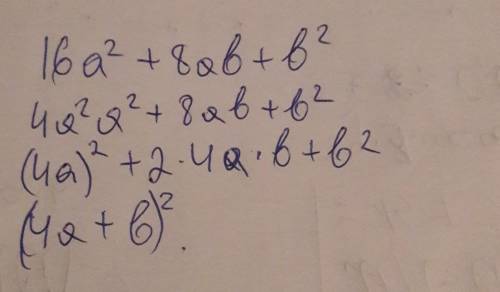 16a² + 8ab + b²
4a²a² + 8ab + b²
(4a)² + 2·4a·b + b²
(4a + b)².